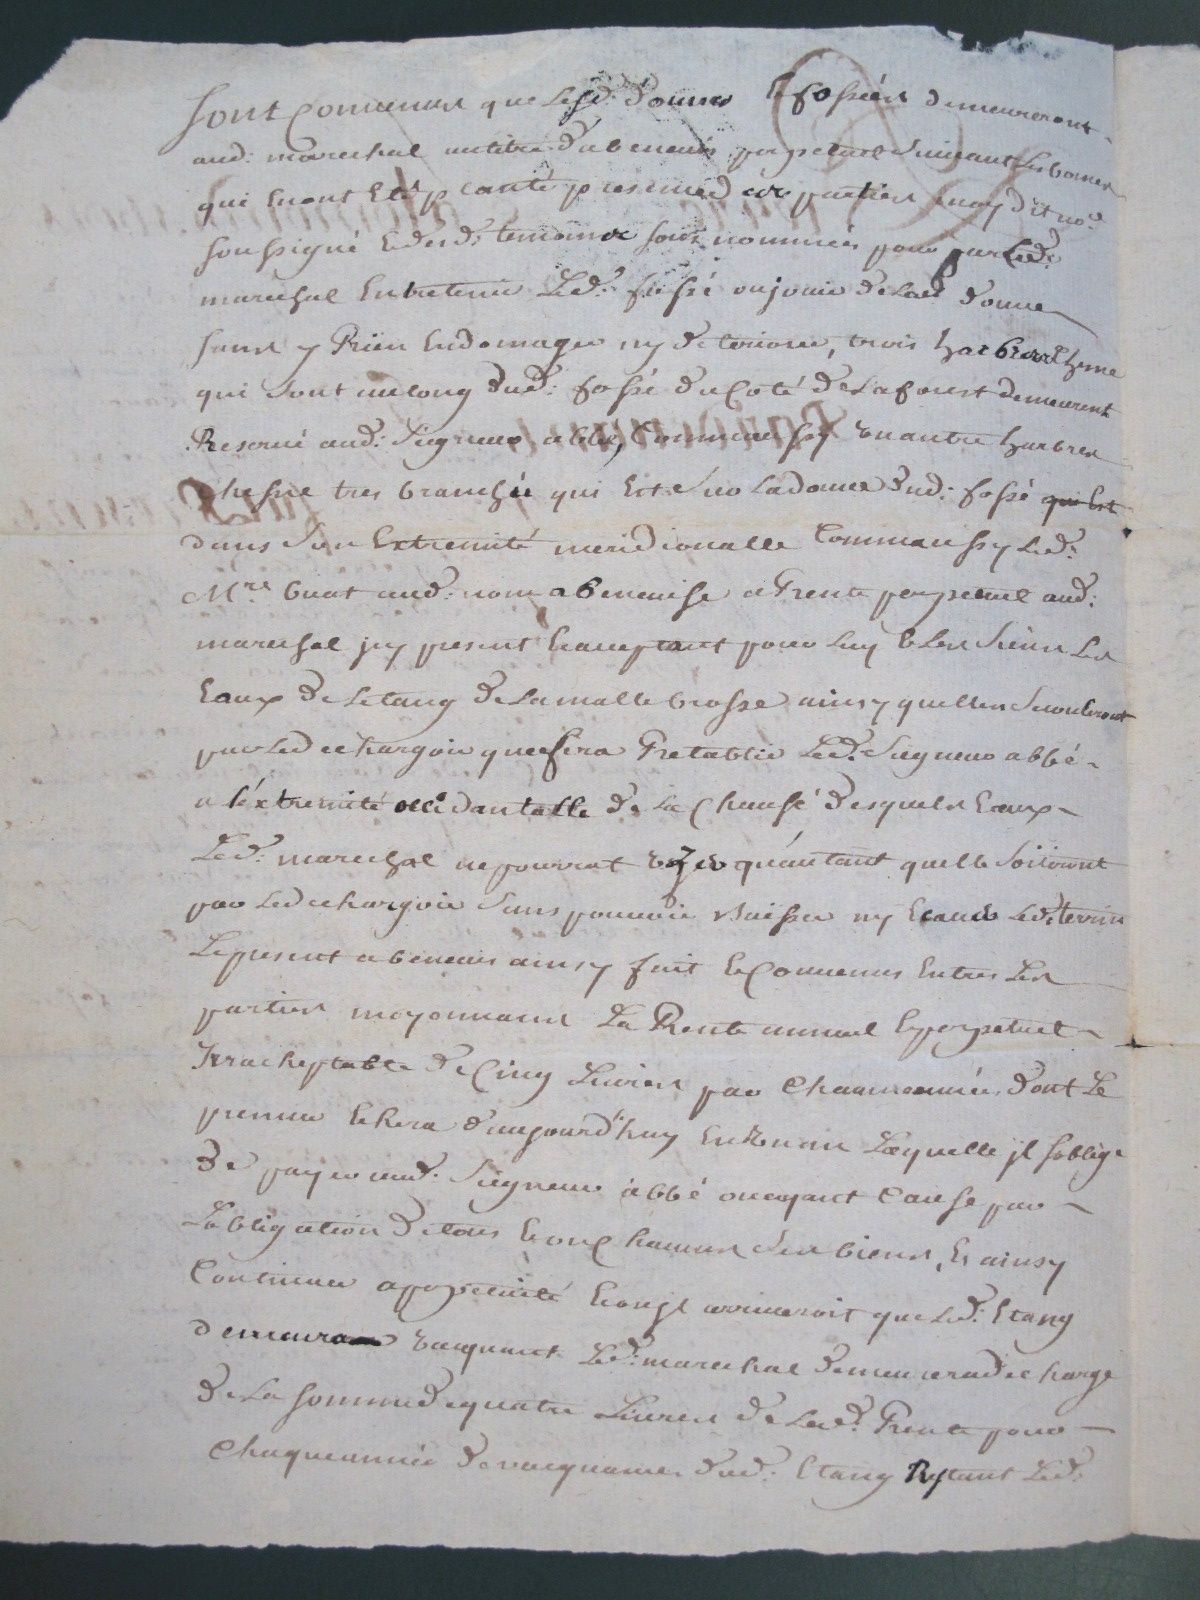 sont Convenus que Lesd: douues & fossées demeureront
aud: marechal autitre d'abeneuis perpetuel suivant Les bornes
qui Enont Eté plantée presences des parties moy dit no.re
soussigné Et desd: temoins sous nommées pour par Led:
marechal Entretenir Led: fossé ou jouir de Lad: douue
sans y Rien Endomager ny deteriorer, trois harbres Chesne
qui sont au long dud: fossé du Coté de La forest demeurent
Reservé aud: Seigneur abbé, Comme aussy un autre harbres
Chesne tres branchée qui Est sur La douue dud: fossé qui Est
dans son Extremité meridionalle Comme aussy Led:
M.re buat aud: nom abeneuise a Rente perpetuel aud:
marechal jcy present Et acceptant pour Luy & Les siens Les
Eaux de Letang de La malle brosse ainsy quelles secouleront
par Le dechargoir que fera Retablir Led: Seigneur abbé
a l'éxtremité occidantalle de La Chaussé desquels Eaux
Led: marechal ne pourrat uzer qu'autant quelle sortiront
par Le dechargoir sans pouvoir baisser ny Led: terrin
Le present abeneuis ainsy fait & Convenus Entres Les
parties moyennant La Rente annuel & perpetuel
Jrracheptable de Cinq Livres par Chacune année, dont Le
premier Echera d'aujourd'huy En un an Laquelle jl soblige
de payer aud: Seigneur abbé ou ayant Cause par
Lobligation de tous Et ung chacuns ses biens, & ainsy
Continuer a perpetuité Et ou jl arriveroit que Led: Etang
demeura vacquant Led: marechal demeurera decharge
de La somme de quatre Livres de Lad: Rente pour
Chaque année de vacquance dud: Etang Restant Led: